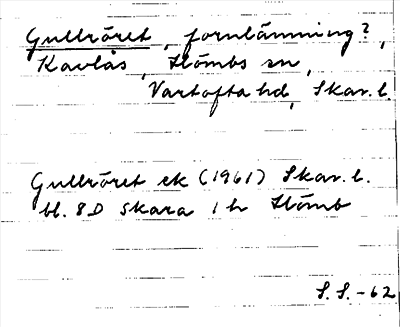 Gullröret, fornlämning?,
Kavlås, Slömbs sn,
Vartofta hd, Skar. l.
Gullröret ek (1961) Skar. l.
bl. 8D Skara 1 h Slömb
S. S. -62